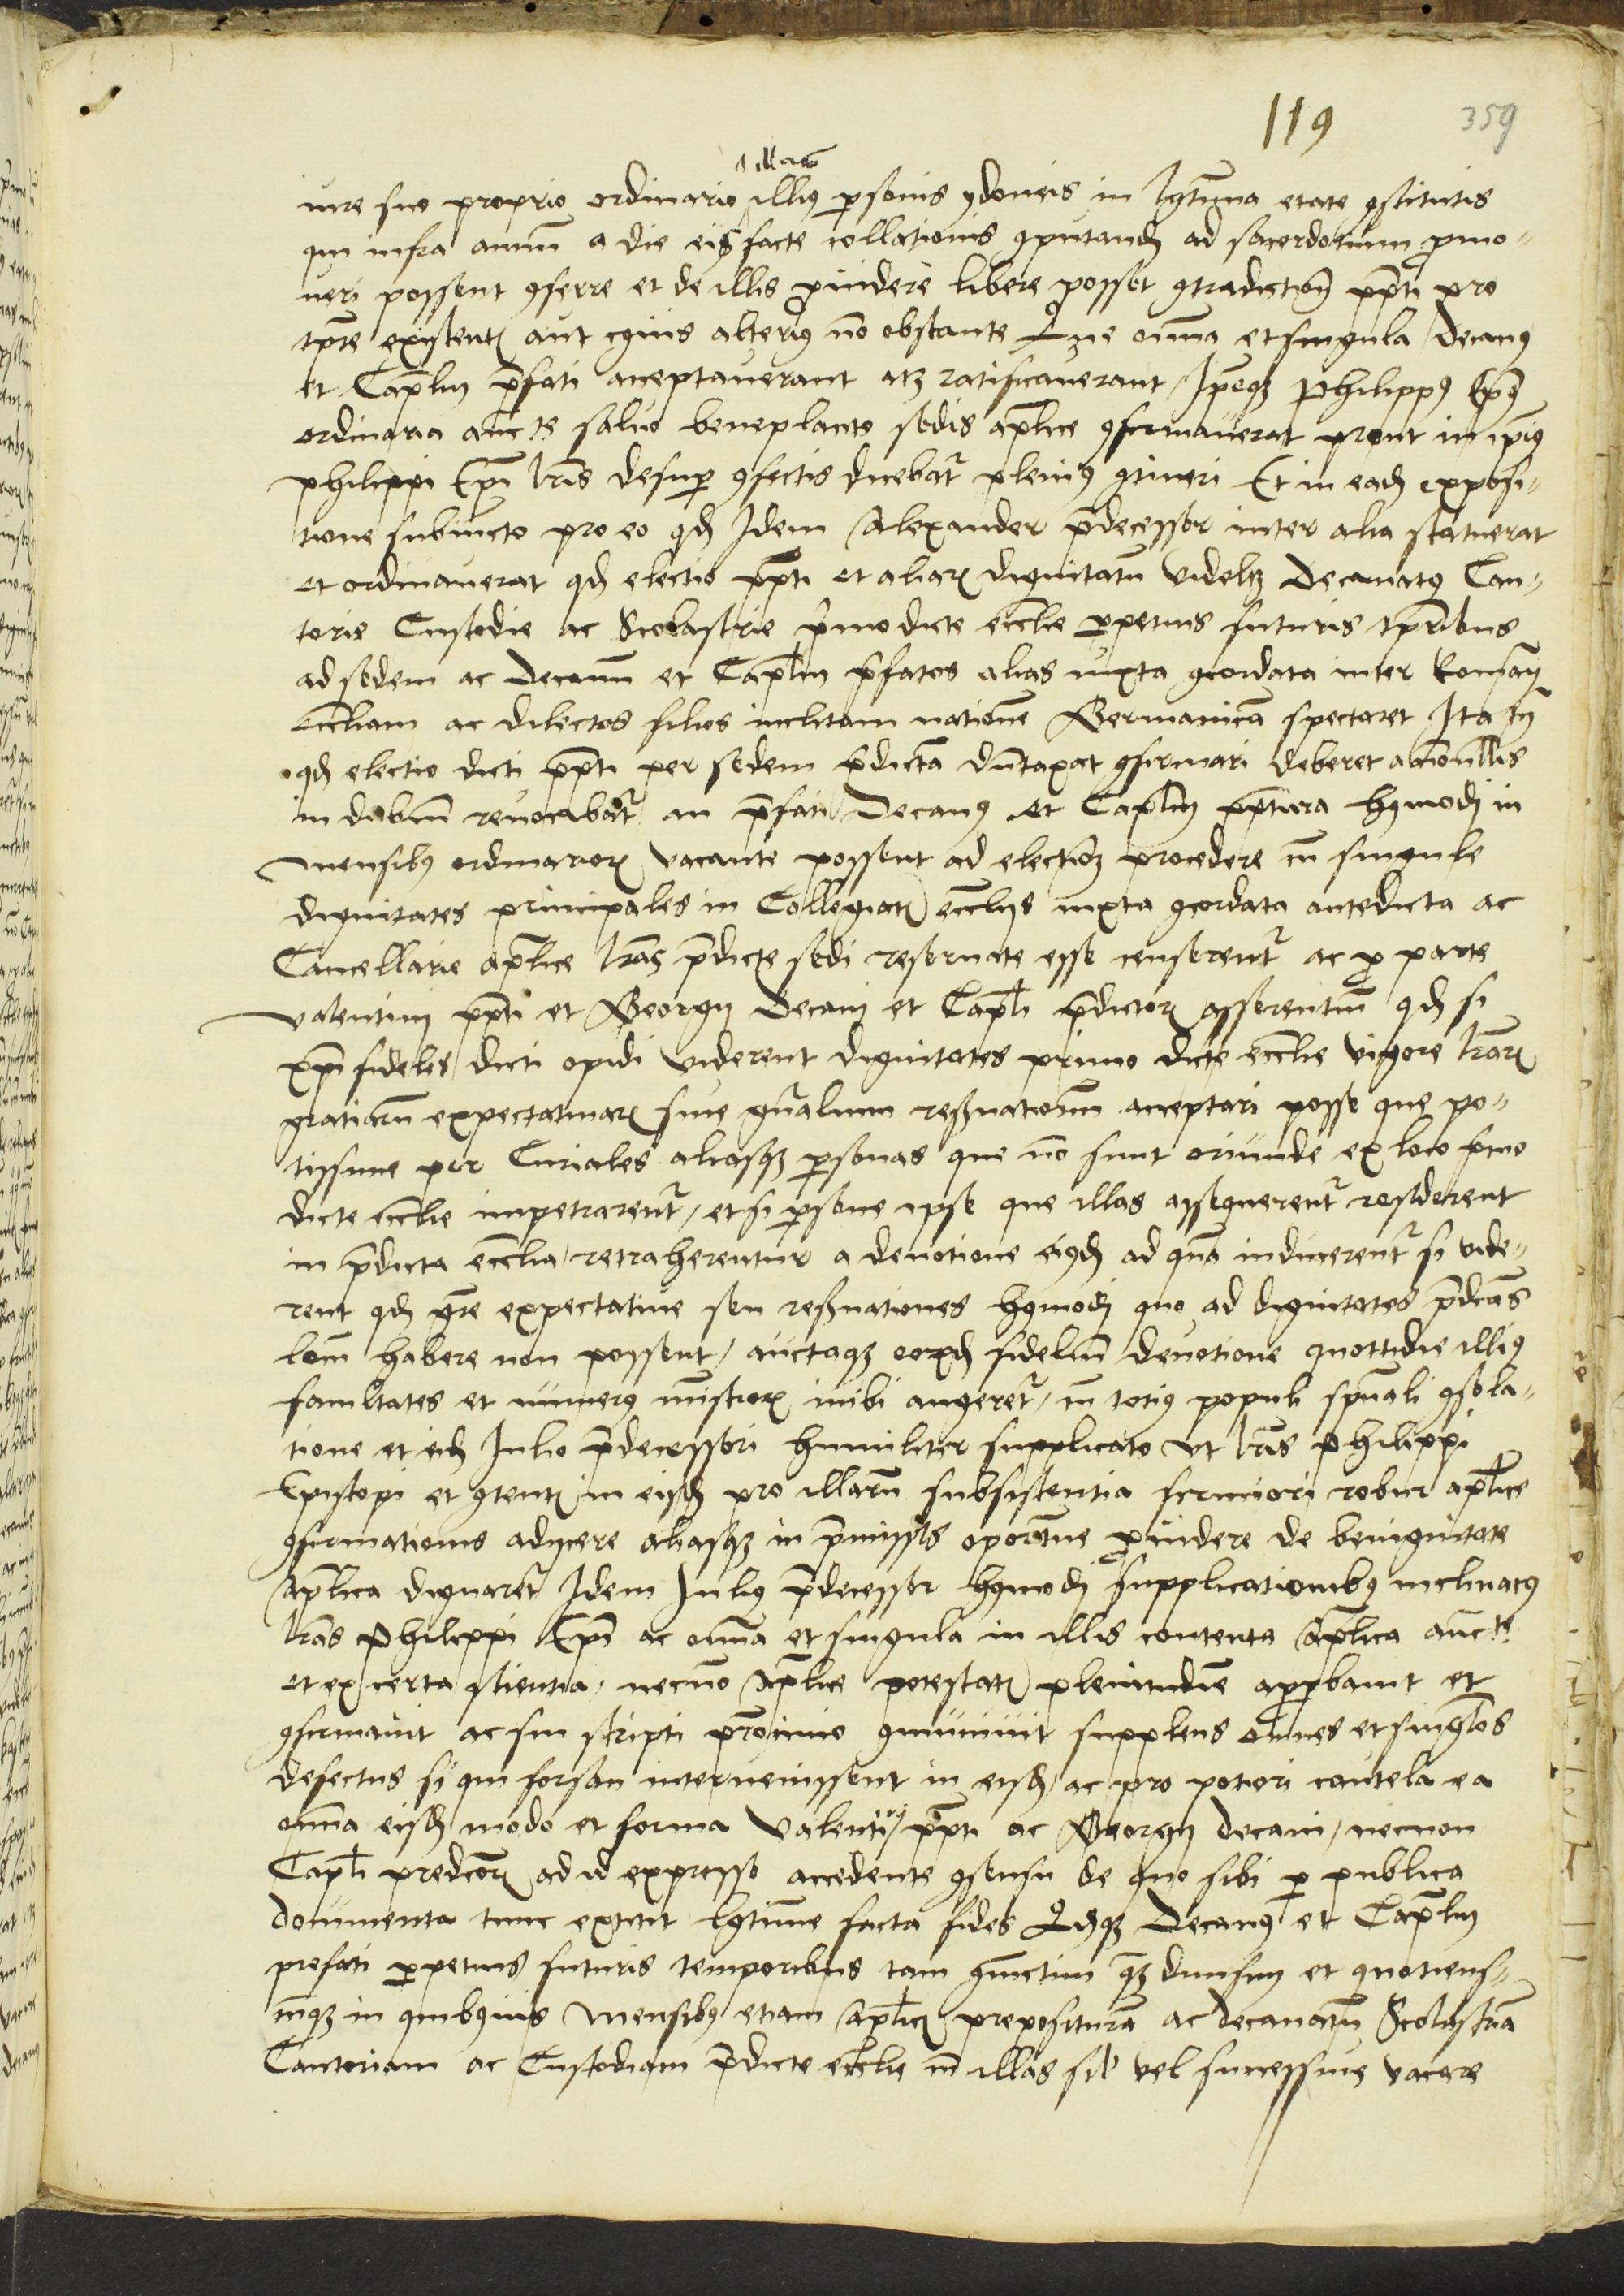 119 359
illas
iure suo proprio ordinario illius personis ydoneis in lgtima etate ꝯstitutis
qui infra annum a die eis facte collationis ꝯputand ad sacerdotium promo-
ueri possent ꝯferre et de illis prouidere libere posset ꝯtradictione ppti pro
tpre existentis aut cuiuis alterius no obstante Que omia et singula Decanus
et Caplm prefati acceptauerant atqꝫ ratificauerant Ipseqꝫ Philippus Epus
ordinaria aucte saluo beneplacito sedis aplice ꝯfirmauerat prout in ipius
philippi Epi lris desuper ꝯfectis dicebatr plenius ꝯtineri Et in ead exposi-
tione subiuncto pro eo qd Idem Alexander predecessor inter alia statuerat
et ordinauerat qd electio ppti et aliar dignitatum videltꝫ Decanatus Can-
torie Custodie ac Scolastrie primodicte ecclie perpetuis futuris tpribus
ad sedem ac Decanum et Caplm prefatos alias iuxta ꝯcordata inter Romanam
eccliam ac dilectos filios inclitam nationem Germanicam spectaret Ita tn
qd electio dicti ppti per sedem predictam duntaxat ꝯfirmari deberet a nonullis
in dubium reuocabatr an prefati Decanus et Caplm ppositura huiusmodi in
mensibus ordinarior vacante possent ad electionem procedere cum singule
dignitates principales in Collegiatis ecclijs iuxta ꝯcordata antedicta ac
Cancellarie aplice lras predicte sedi reseruate esse censerentr ac pro parte
valentini ppti et Georgij Decani et Capli predictor asserentium qd si
xpifideles dicti opidi viderent dignitates primo dicte ecclie vigore lrar
gratiarum expectatiuar siue gnalium reseruationum acceptari posse que po-
tissime per Curiales aliasqꝫ personas que no sunt oriunde ex loco primo
dicte ecclie impetrarentr, et si persone ipse que illas assequerentr residerent
in predicta ecclia retraherentur a deuotione eiusd ad quam inducerentr si vide-
rent qd gre expectatiue seu reseruationes huiusmodi quo ad dignitates predictas
locum habere non possent, auctaqꝫ eorund fidelium deuotione quottidie illius
facultates et numerus mistror inibi augeretr, cum totius populi spuali ꝯsola-
tione et eid Iulio predecessori humiliter supplicato vt lris Philippi
Episcopi et ꝯtentis in eisd pro illarum subsistentia firmiori robur aplice
ꝯfirmationis adijcere aliasqꝫ in premissis oportune prouidere de benignitate
aplica dignaretr Idem Iulius predecessor huiusmodi supplicationibus inclinatus
lras Philippi Epi ac omia et singula in illis contenta aplica aucte
et ex certa scientia, necno aplice potestatis plenitudine approbauit et
ꝯfirmauit ac sui scripti procinio ꝯmuniuit supplens omnes et singulos
defectus si qui forsan interuenissent in eisd, ac pro potiori cautela ea
omnia eisd modo et forma Valentini ppti ac Georgij decani, necnon
Capli predcor ad id expresse accedente ꝯsensu de quo sibi per publica
documenta tunc extitit lgtime facta fides Qdqꝫ Decanus et Caplm
prefati perpetuis futuris temporibus tam ꝯiunctim qꝫ diuisim et quotiens-
cunqꝫ in quibusuis mensibus etiam aplicis preposituram ac decanatum Scolastriam
Cantoriam ac Custodiam predicte ecclie cum illas sil vel successiue vacare